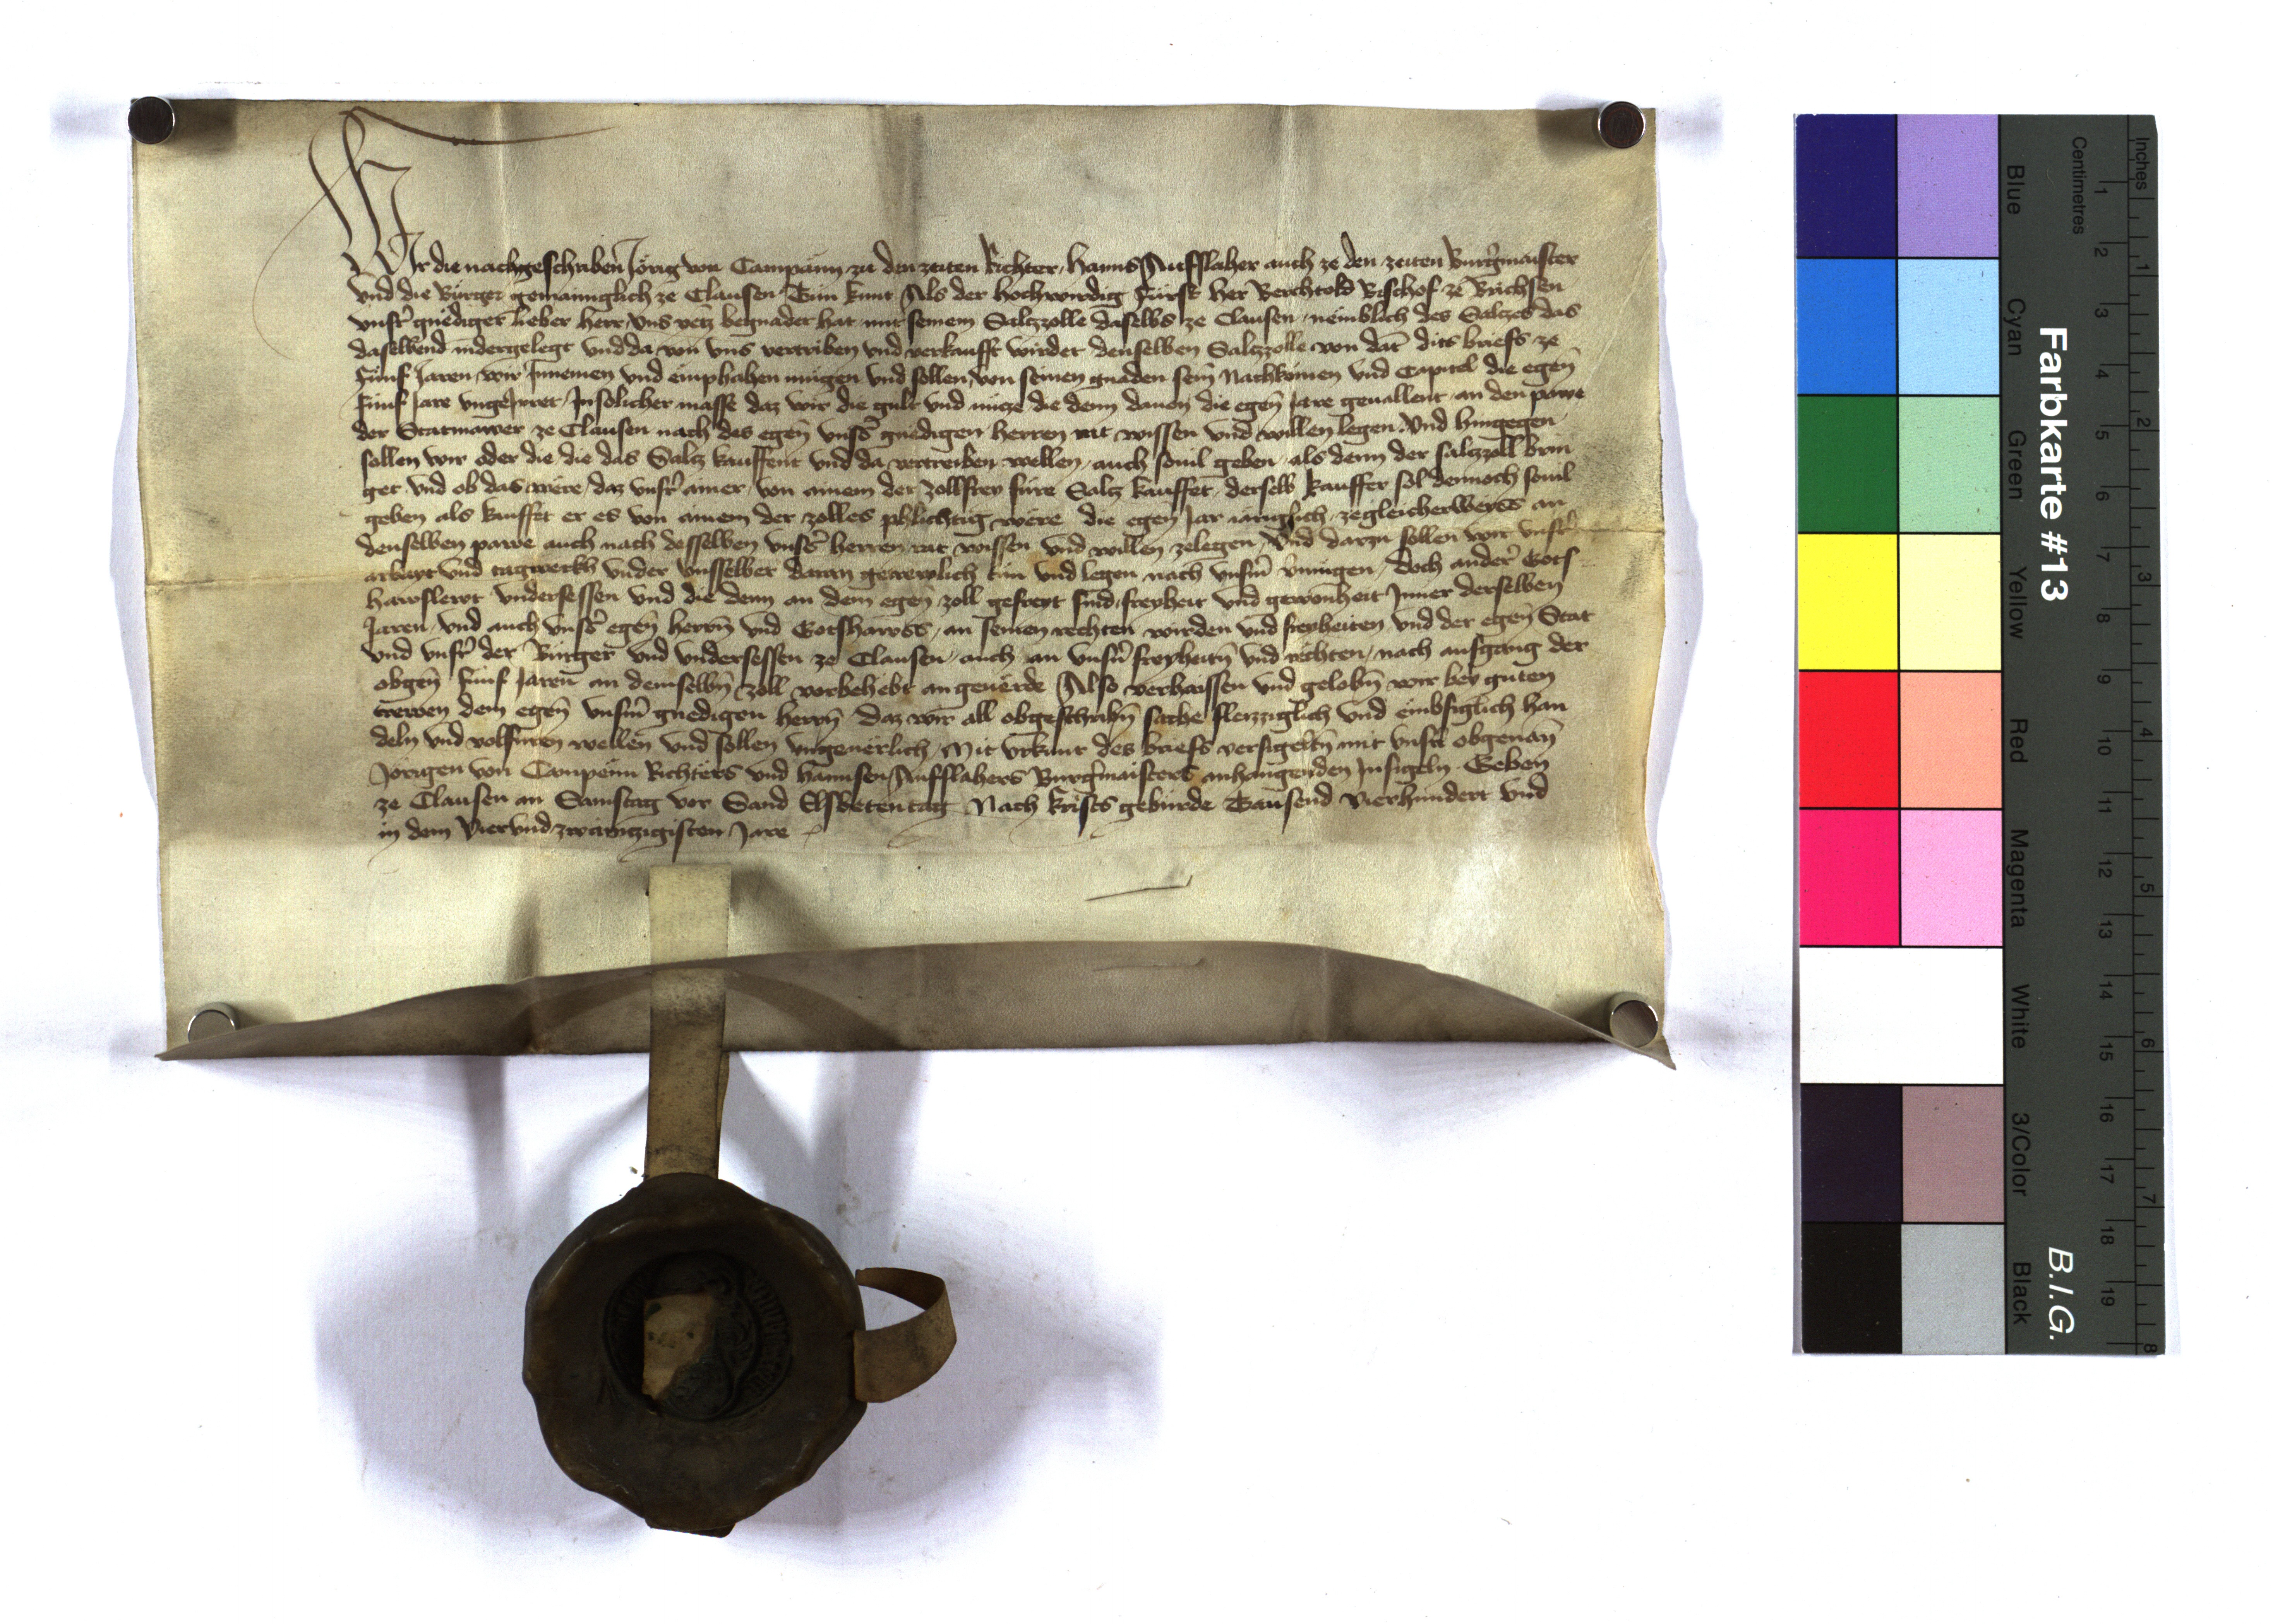 Wir die nachgeschriben Jörig von Campann zu den zeiten Richter, Hanns Aufslaher auch ze den zeiten Burgmaister
vnd die Burger gemainniglich ze Clausen Tun kunt Als der hochwirdig Fürst her Berchtold Bischof ze Brichsen
vnsr gnediger lieber herr, vns yetz begnadet hat mit seinem Saltzzolle daselbs ze Clausen, nemblich des Saltzes das
daselbend nidergelegt vnd da von vns vertriben vnd verkaufft wirdet denselben Saltzzolle von dat dits briefs ze
Fünf Jaren, wir Innemen vnd emphahen mügen vnd sollen, von seinen gnaden sein Nachkomen vnd Capitel die egen
fünf Jare vngeJrret, Jn solicher masse daz wir die gult vnd nütze die denn dauon die egen Jare geuallent, an den pawe
der Statmawer ze Clausen nach des egen vnsrs gnedigen herren rat wissen vnd willen legen. Vnd hingegen
sollen wir oder die, die das Saltz kauffent vnd da vertreiben wellen, auch souil geben, als denn der saltzzoll brin
get. vnd ob das were, daz vnsr ainer, von ainem der zollfrey füre Saltz kauffet, derselb kauffer sol dennoch souil
geben als kauffet er es von ainem der zolles phlichtig were die egen Jar iäriglich, zegleicherweyss an
denselben pawe auch nach desselben vnsrs herren rat wissen vnd willen zelegen, Vnd darzu sollen wir vnsr
arbayt vnd tagwerkh vnder vnsselber daran getrewlich tun vnd legen nach vnserm vermügen, doch andrer Gots
hawslewt vndersessen vnd die denn an dem egen zoll gefreyt sind, freyheit vnd gewonheit Jnner derselben
Jaren, vnd auch vnsrs egen herrn vnd Gotshawss, an seinen rechten wirden vnd freyheiten vnd der egen Stat
vnd vnsr der Burger vnd vndersessen ze Clausen, auch an vnsrn freyheitn vnd rechten, nach ausgang der
obgen fünf Jaren an demselbn zoll vorbehebt an geuerde Also verhaissen vnd gelobn wir bey guten
trewen dem egen vnserm gnedigen herrn, daz wir all obgeschribn sache fleizziglich vnd embsiglich han
deln vnd volfüren wellen vnd sollen vngeuerlich, Mit vrkunt des briefs versigeltn mit vnsrn obgenan
Jörigen von Campenn Richters vnd Hannsen Aufslahers Burgmaisters anhangenden Jnsigeln. Geben
ze Clausen an Samstag vor Sand Elsbetentag Nach Krists gebürde Tausend vierhundert vnd
in dem Viervndzwaintzigisten Jare
Farbkarte #13
B.I.G.
Blue Cyan Green Yellow Red Magenta White 3/Color Black
Centimetres 1 2 3 4 5 6 7 8 9 10 11 12 13 14 15 16 17 18 19
Inches 1 2 3 4 5 6 7 8